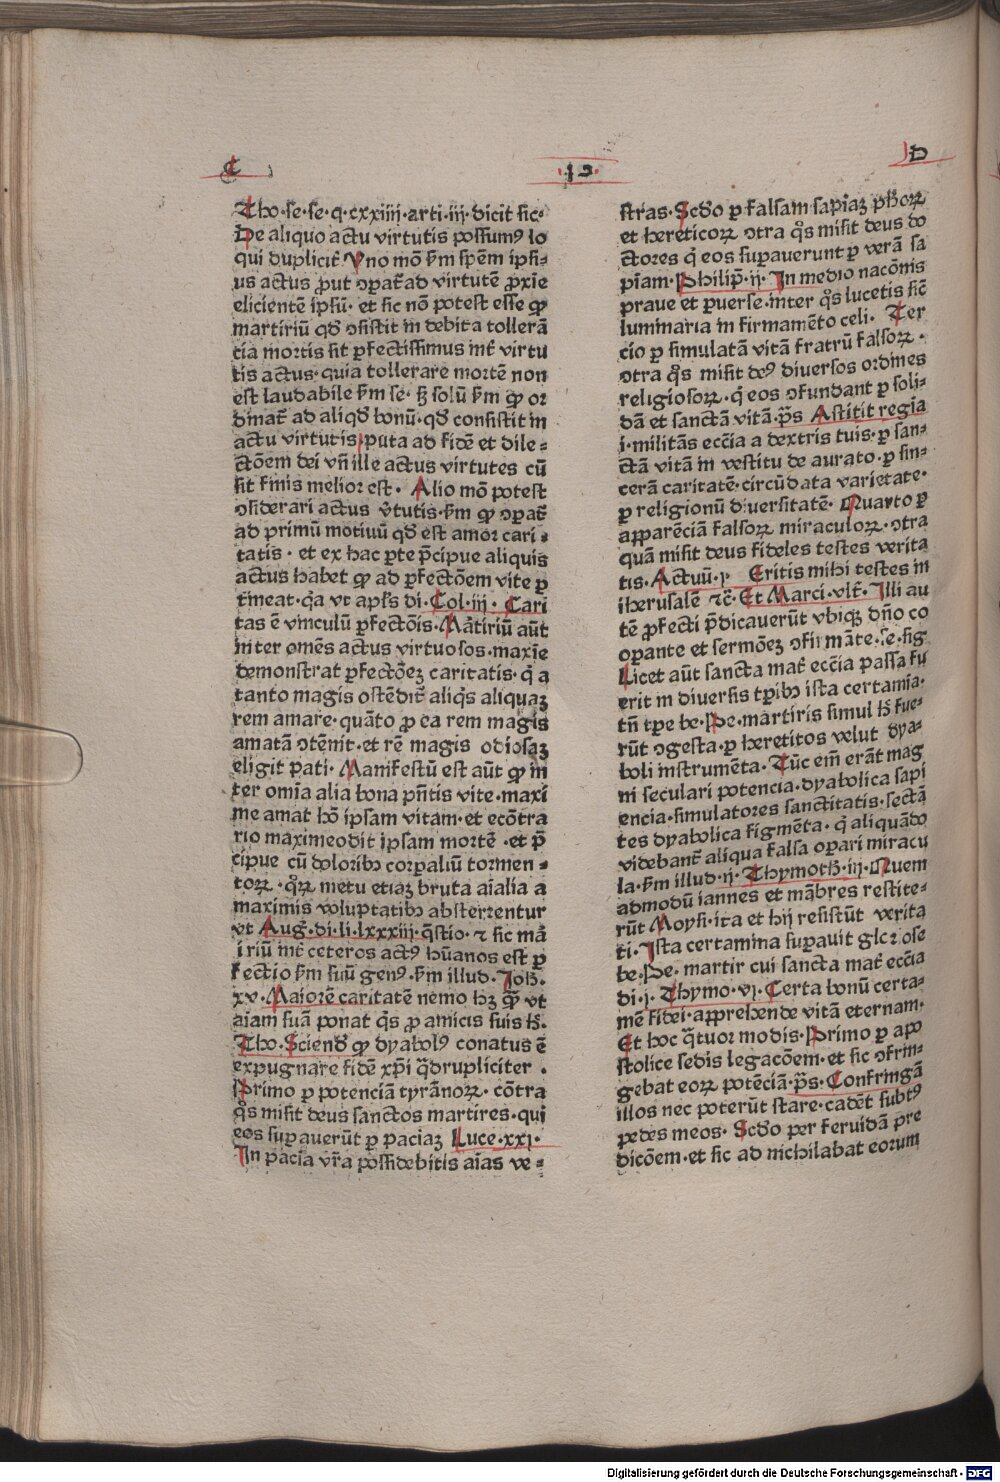 C
·12·
D
Tho·se·se·q·cxxiiii·arti·iii·dicit sic·
De aliquo actu virtutis possumꝰ lo
qui duplicit̃ Vno mõ ẜm spẽm ipsi-
us actus ꝓut oꝑat̃ ad virtutẽ ꝓxie
elicientẽ ipsũ· et sic nõ potest esse ꝙ
martiriũ qđ ꝯsistit in debita tollerã
cia mortis sit ꝑfectissimus int̃ virtu
tis actus· quia tollerare mortẽ non
est laudabile ẜm se· sꝫ solũ ẜm ꝙ or
dinat̃ ad aliqđ bonũ· qđ consistit in
actu virtutis puta ad fidẽ et dile-
ctõem dei vñ ille actus virtutes cũ
sit finis melior est· Alio mõ potest
ꝯsiderari actus v̾tutis· ẜm ꝙ ꝯꝑat̃
ad primũ motiuũ qđ est amor cari-
tatis· et ex hac ꝑte p̃cipue aliquis
actus habet ꝙ ad ꝑfectõem vite ꝑ
t̃ineat· q̃a vt apl̃s di· Col·iii· Cari
tas ẽ vinculũ ꝑfectõis· Mãtiriũ aũt
inter om̃es actus virtuosos· maxĩe
demonstrat ꝑfectõeꝫ caritatis· q̃ a
tanto magis ostẽdit̃ aliq̃s aliquaꝫ
rem amare· quãto ꝓ ea rem magis
amatã ꝯtẽnit· et rẽ magis odiosaꝫ
eligit pati· Manifestũ est aũt ꝙ in
ter om̃ia alia bona pñtis vite· maxi
me amat hõ ipsam vitam· et ecõtra
rio maxime odit ipsam mortẽ· et p̃
cipue cũ doloribꝫ corꝑaliũ tormen-
toꝝ· q̃ꝝ metu etiaꝫ bruta aĩalia a
maximis voluptatibꝫ absterrentur
vt Aug̃· di· li· lxxxiii· q̃stio· ⁊ sic mã
tiriũ int̃ ceteros actꝰ hũanos est ꝑ
fectio ẜm suũ genꝰ· ẜm illud· Joh̃·
xv· Maiorẽ caritatẽ nemo hꝫ q̃ꝫ vt
aĩam suã ponat q̃s ꝓ amicis suis hꝭ·
Tho· Sciend̃ ꝙ dyabolꝰ conatus ẽ
expugnare fidẽ xp̃i q̃drupliciter·
Primo ꝑ potenciã tyrãnoꝝ· cõtra
q̃s misit deus sanctos martires· qui
eos suꝑauerũt ꝑ paciaꝫ Luce·xxi·
In pacia vr̃a possidebitis aĩas ve-
stras· Scđo ꝑ falsam sapĩaꝫ ph̃oꝝ
et hereticoꝝ ꝯtra q̃s misit deus do
ctores q̃ eos suꝑauerunt ꝑ verã sa
piam· Philip̃·ii· In medio nacõnis
praue et ꝑuerse· inter q̃s lucetis sic̃
luminaria in firmamẽto celi· Ter
cio ꝑ simulatã vitã fratrũ falsoꝝ·
ꝯtra q̃s misit deꝰ diuersos ordines
religiosoꝝ· q̃ eos ꝯfundant ꝑ soli-
dã et sanctã vitã· p̃s Astitit regia
i· militãs ecc̃ia a dextris tuis· ꝑ san-
ctã vitã in vestitu de aurato· ꝑ sin-
cerã caritatẽ· circũdata varietate·
ꝑ religionũ diuersitatẽ· Quarto ꝑ
apparẽciã falsoꝝ miraculoꝝ· ꝯtra
quã misit deus fideles testes verita
tis· Actuũ·i· Eritis mihi testes in
iherusalẽ ⁊c̃· Et Marci·vlt̃· Illi au
tẽ ꝓfecti p̃dicauerũt vbiqꝫ dño co
oꝑante et sermõeꝫ ꝯfirmãte· se· sig
Licet aũt sancta mat̃ ecc̃ia passa fu
erit in diuersis tꝑibꝫ ista certamĩa·
tñ tꝑe be· Pe· martiris simul hꝭ fue-
rũt ꝯgesta· ꝑ heretitos velut dya-
boli instrumẽta· Tũc em̃ erãt mag
ni seculari potencia· dyabolica sapi
encia· simulatores sanctitatis· sectã
tes dyabolica figmẽta· q̃ aliquãdo
videbant̃ aliqua falsa oꝑari miracu
la· ẜm illud·ii· Thymoth̃·iii· Quem
admodũ iannes et mãbres restite-
rũt Moysi· ita et hij resistũt verita
ti· Ista certamina suꝑauit glc̃iose
be· Pe· martir cui sancta mat̃ ecc̃ia
di·i· Thymo·vi· Certa bonũ certa-
mẽ fidei· apprehende vitã eternam·
Et hoc q̃tuor modis· Primo ꝑ apo
stolice sedis legacõem· et sic ꝯfrin-
gebat eoꝝ potẽciã· p̃s· Confringã
illos nec poterũt stare· cadẽt subtꝰ
pedes meos· Scđo per feruidã pre
dicõem· et sic ad nichilabat eorum
Digitalisierung gefördert durch die Deutsche Forschungsgemeinschaft · DFG